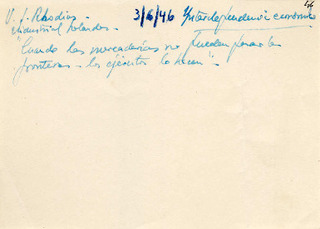 V. J. Rhodius - 3/6/46 Interdependencia económica
industrial holandes -
"Cuando las mercaderías no pueden pasar las
fronteras - los ejércitos lo hacen" -